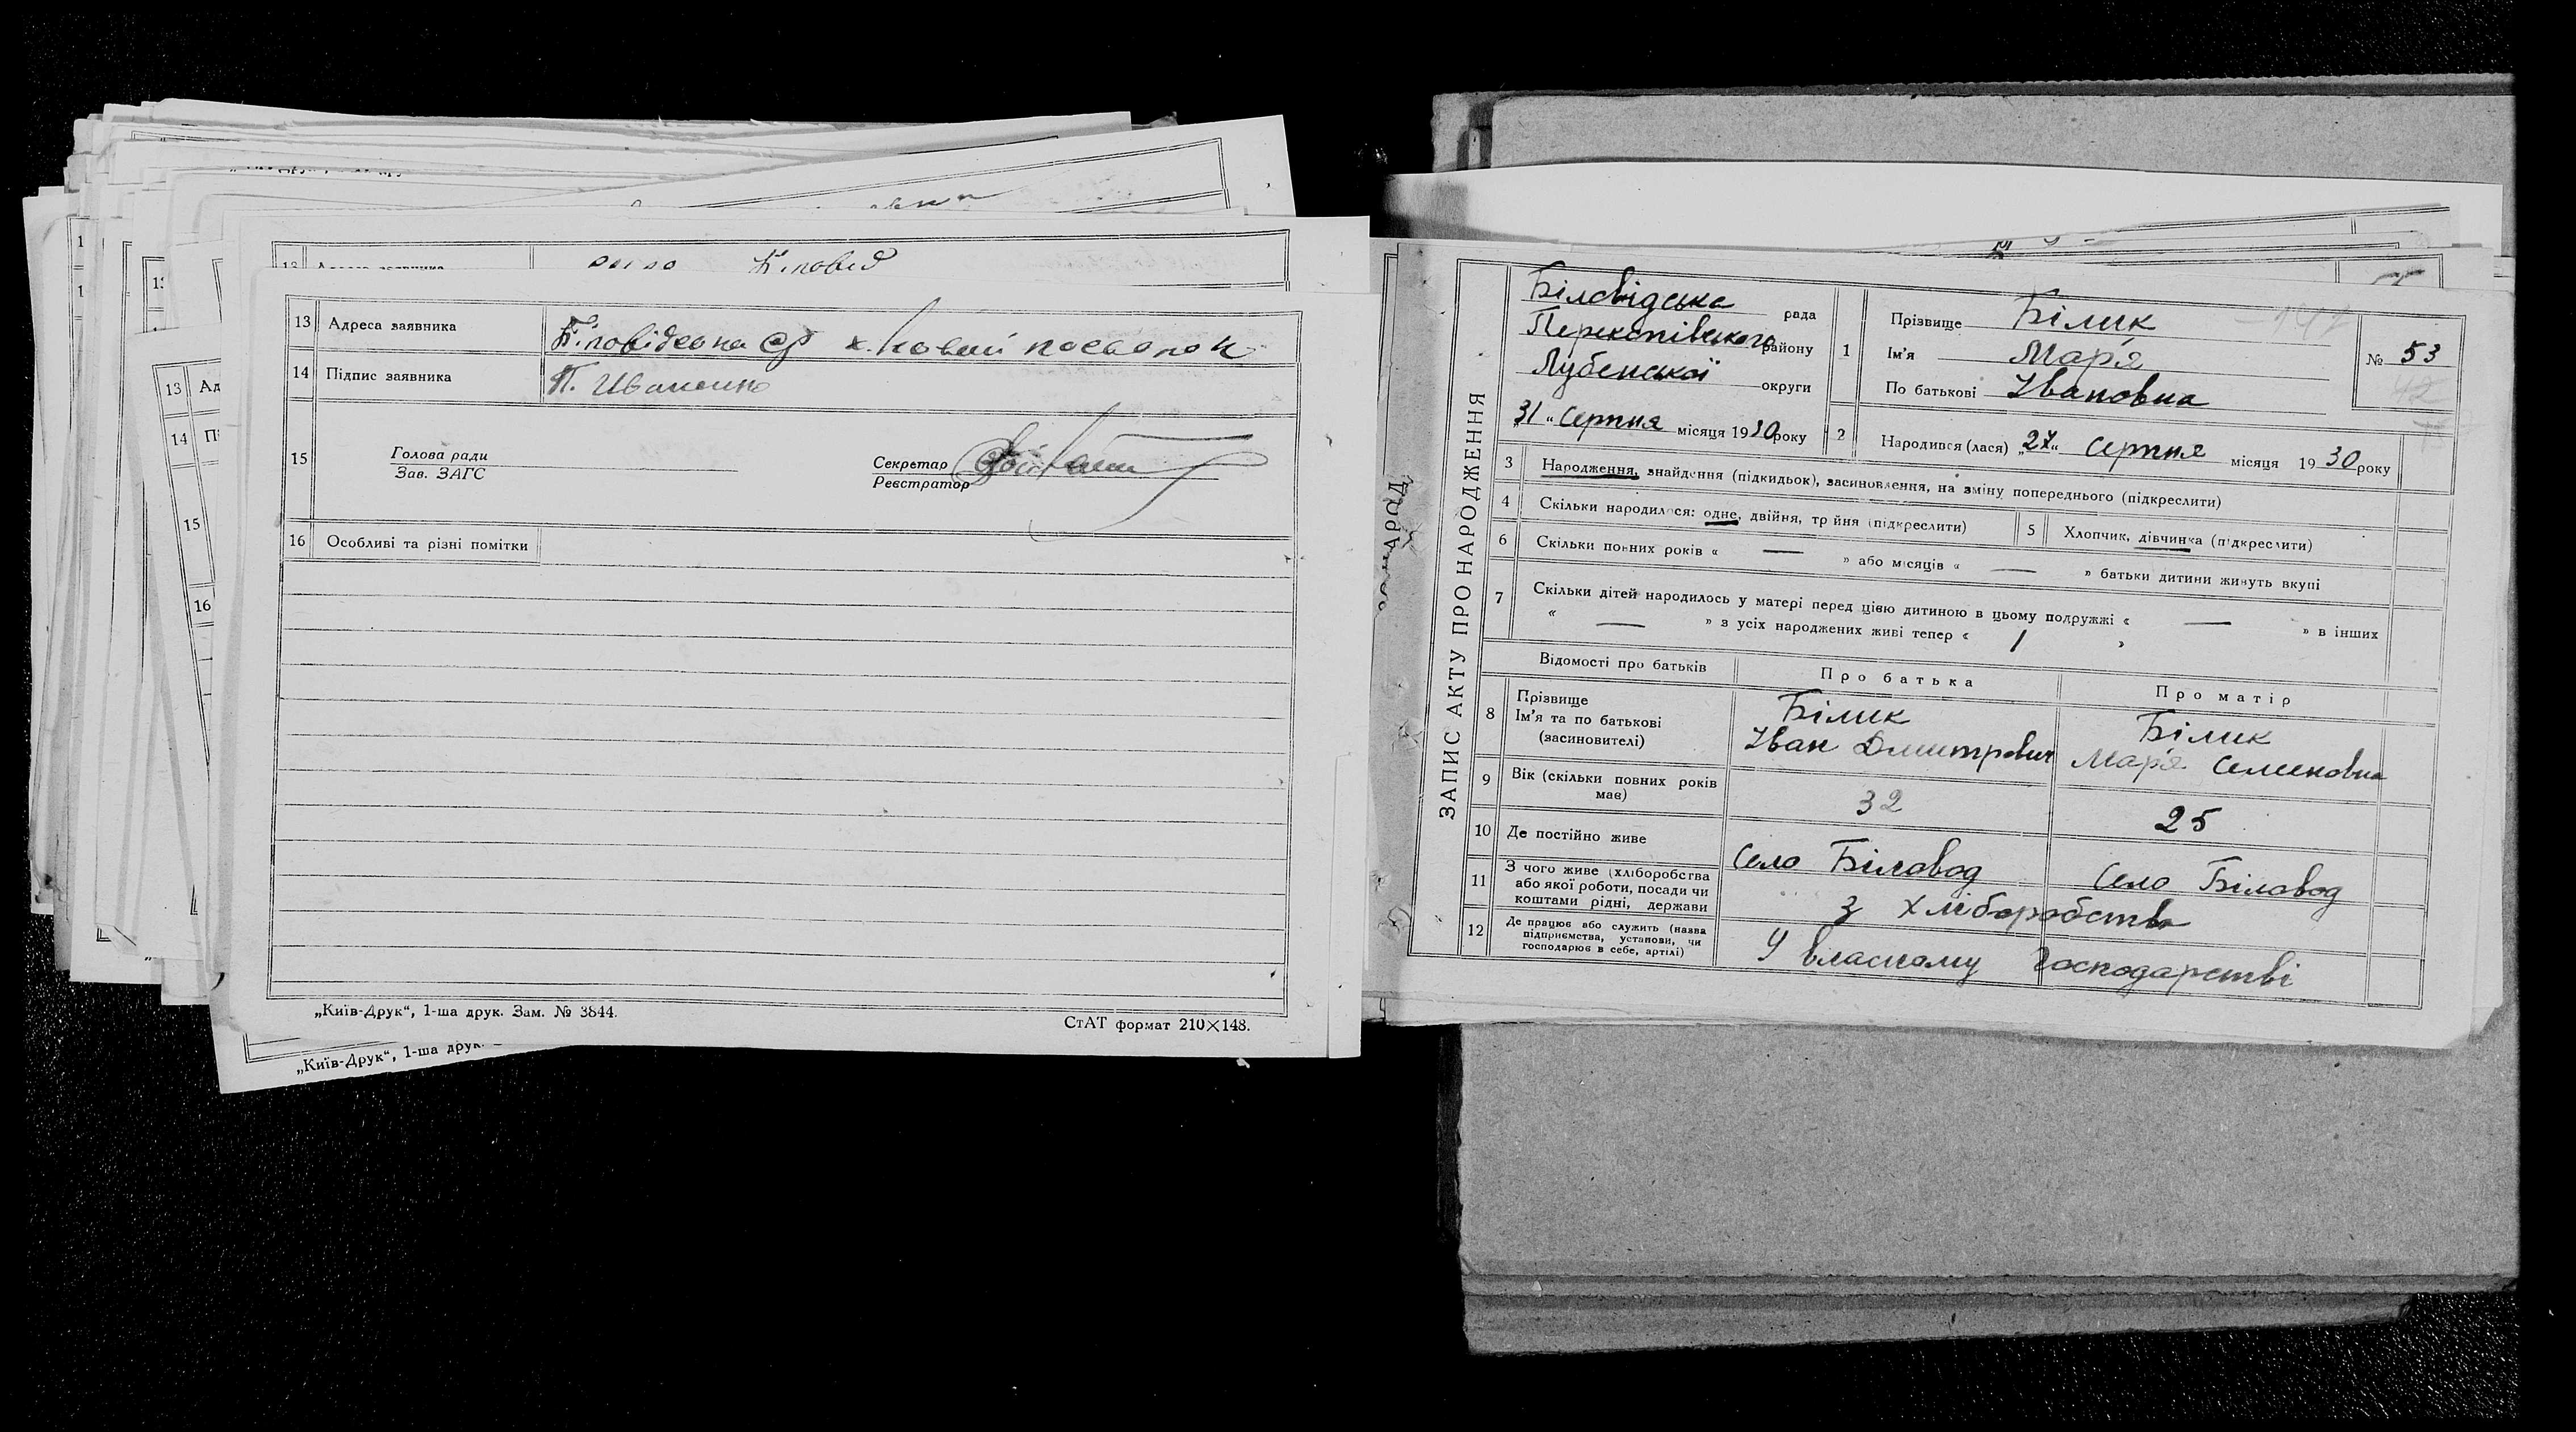 село Біловод
13 Адреса заявника Біловідська с/р х. Новий поселок
14 Підпис заявника П. Иваненко
15 Голова ради
Зав. ЗАГС
Секретар
Реєстратор
16 Особливі та різні помітки
„Київ-Друк“, 1-ша друк. Зам. № 3844.
СтАТ формат 210×148.
„Київ-Друк“, 1-ша друк.
13 Ад
14 Пі
15
16
ЗАПИС АКТУ ПРО НАРОДЖЕННЯ
Біловідська рада
Перекопівського району
Лубенської округи
„31“ Серпня місяця 1930 року
1 Прізвище Білик
Ім'я Мар'я
По батькові Івановна
№ 53
42
147
2 Народився (лася) „27“ Серпня місяця 1930 року
3 Народження, знайдення (підкидьок), засиновлення, на зміну попереднього (підкреслити)
4 Скільки народилося: одне, двійня, трійня (підкреслити)
5 Хлопчик, дівчинка (підкреслити)
6 Скільки повних років « — » або місяців « — » батьки дитини живуть вкупі
7 Скільки дітей народилось у матері перед цією дитиною в цьому подружжі « — » в інших
« — » з усіх народжених живі тепер « 1 »
Відомості про батьків Про батька Про матір
8 Прізвище
Ім'я та по батькові
(засиновителі)
Білик
Іван Дмитрович
Білик
Мар'я Семеновна
9 Вік (скільки повних років має) 32 25
10 Де постійно живе Село Біловод Село Біловод
11 З чого живе (хліборобства
або якої роботи, посади чи
коштами рідні, держави
З хліборобства
12 Де працює або служить (назва
підприємства, установи, чи
господарює в себе, артілі)
У власному господарстві